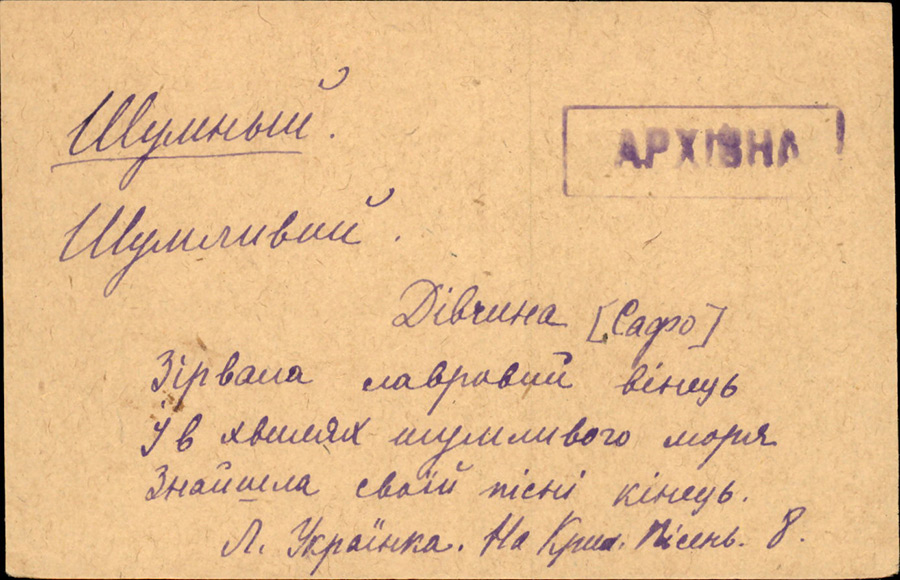 Шумный.
АРХІВНА
Шумливий.
Дівчина [Сафо]
Зірвала лавровий вінець
І в хвилях шумливого моря
Знайшла своїй пісні кінець.
Л. Українка. На Крил. Пісень. 8.